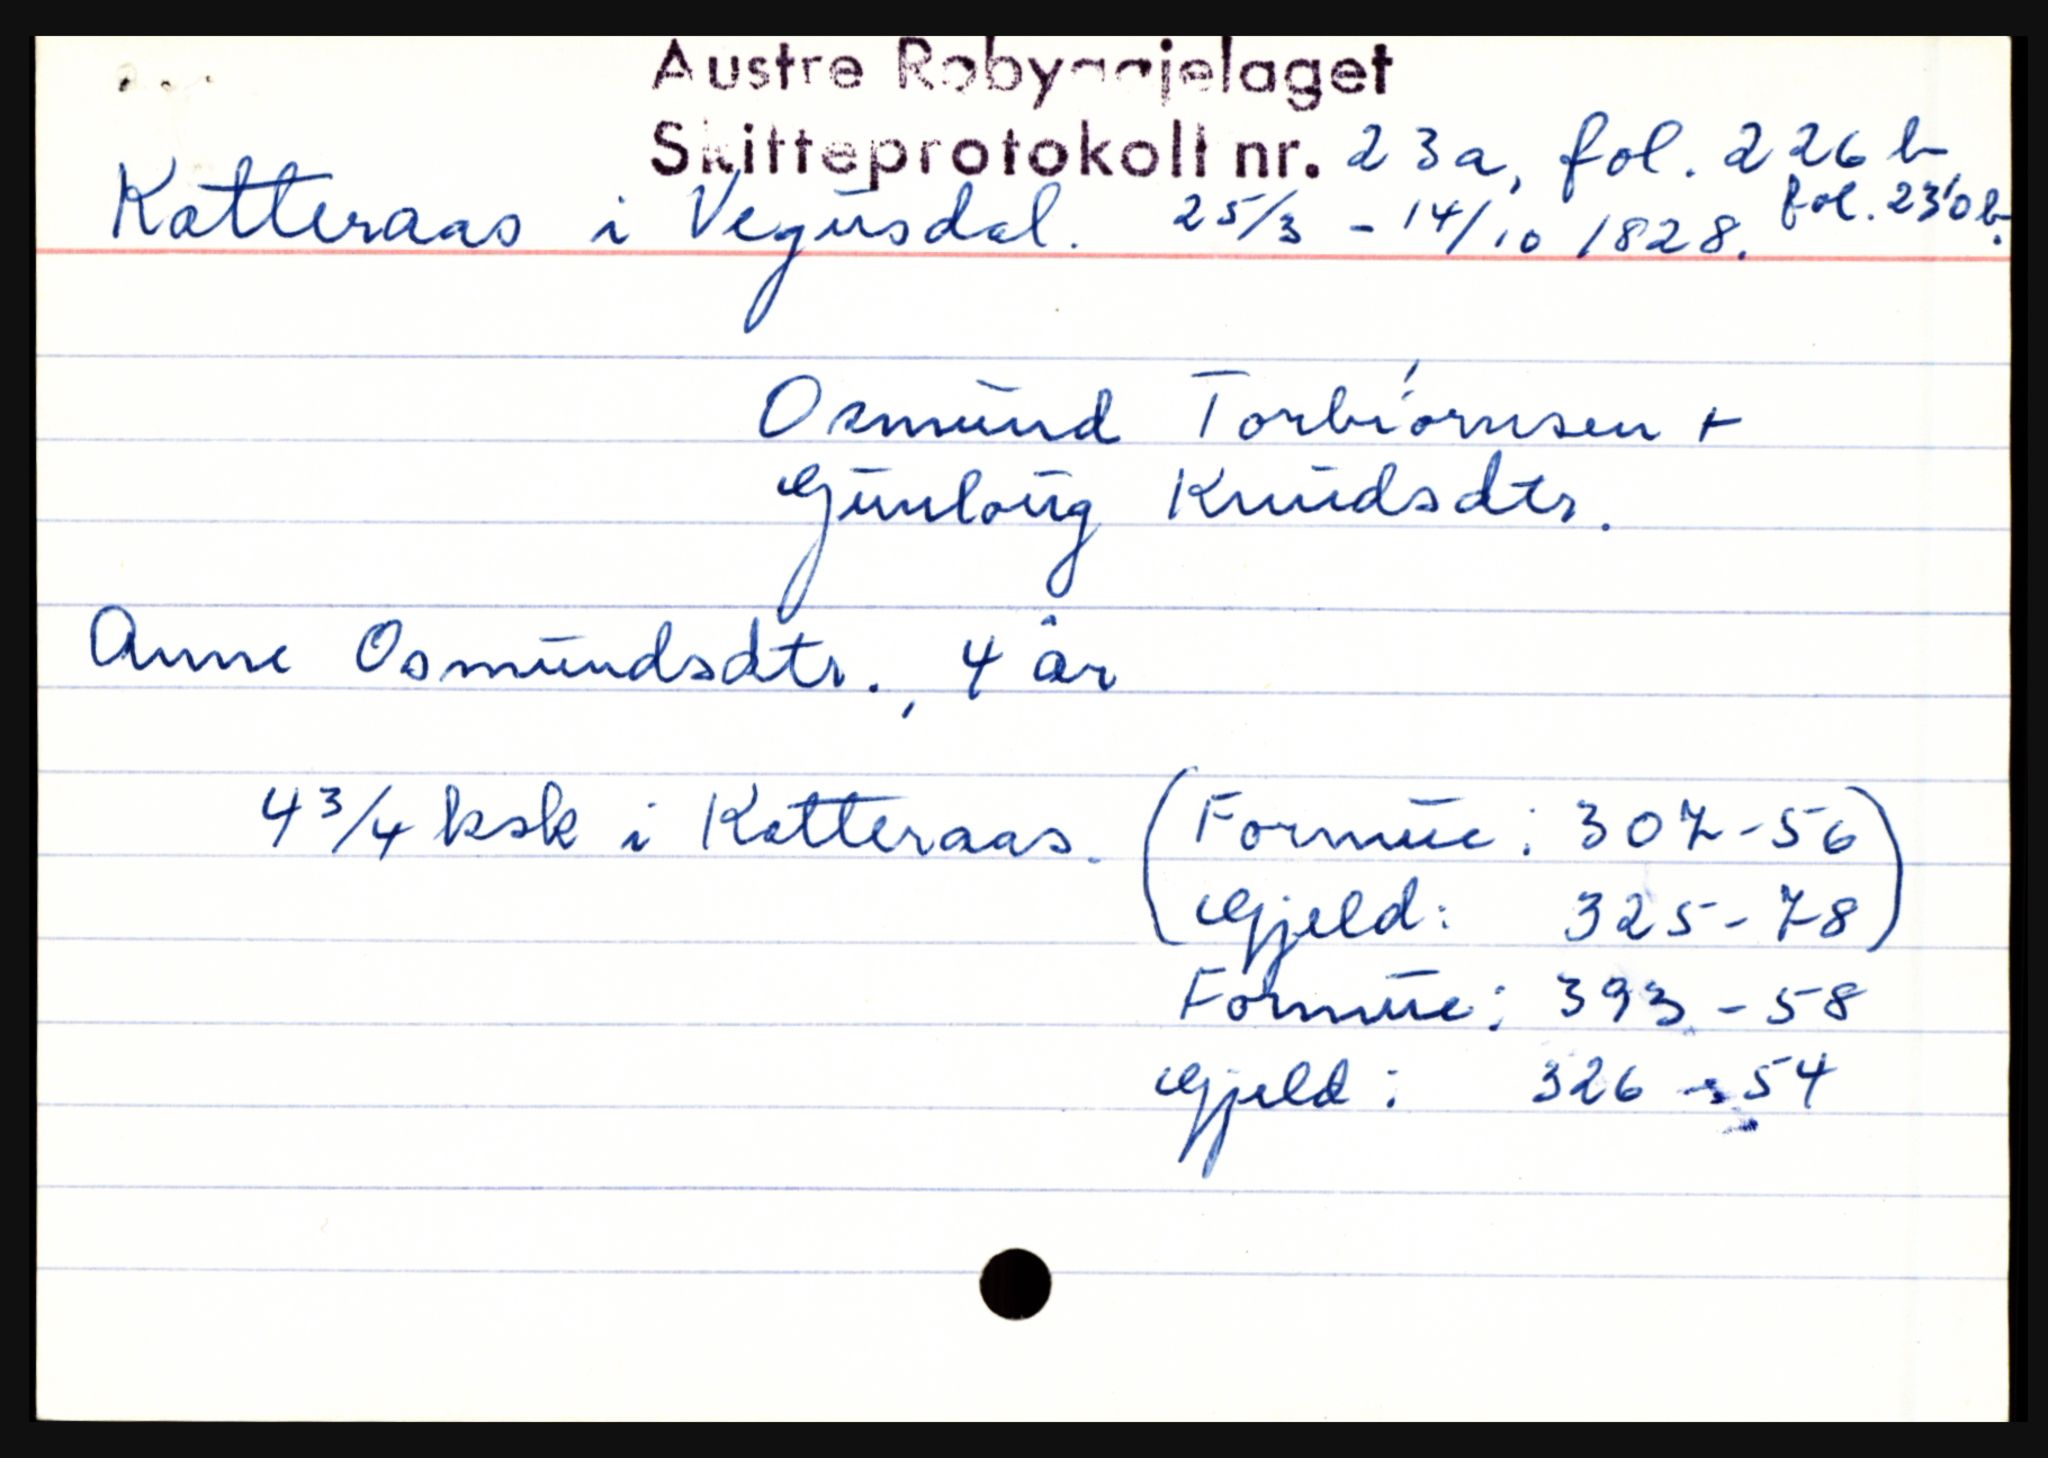 Austre Robyggjelaget
Skifteprotokoll nr. 23a, fol. 226 b
fol. 230 b.
Katteraas i Vegusdal. 25/3 - 14/10 1828.
Osmund Torbiørnsen +
Gunloug Knudsdtr.
Anne Osmundsdtr., 4 år
4 3/4 ksk i Katteraas. (Formue: 307-56
Gjeld: 325-78)
Formue: 393-58
Gjeld: 326-54